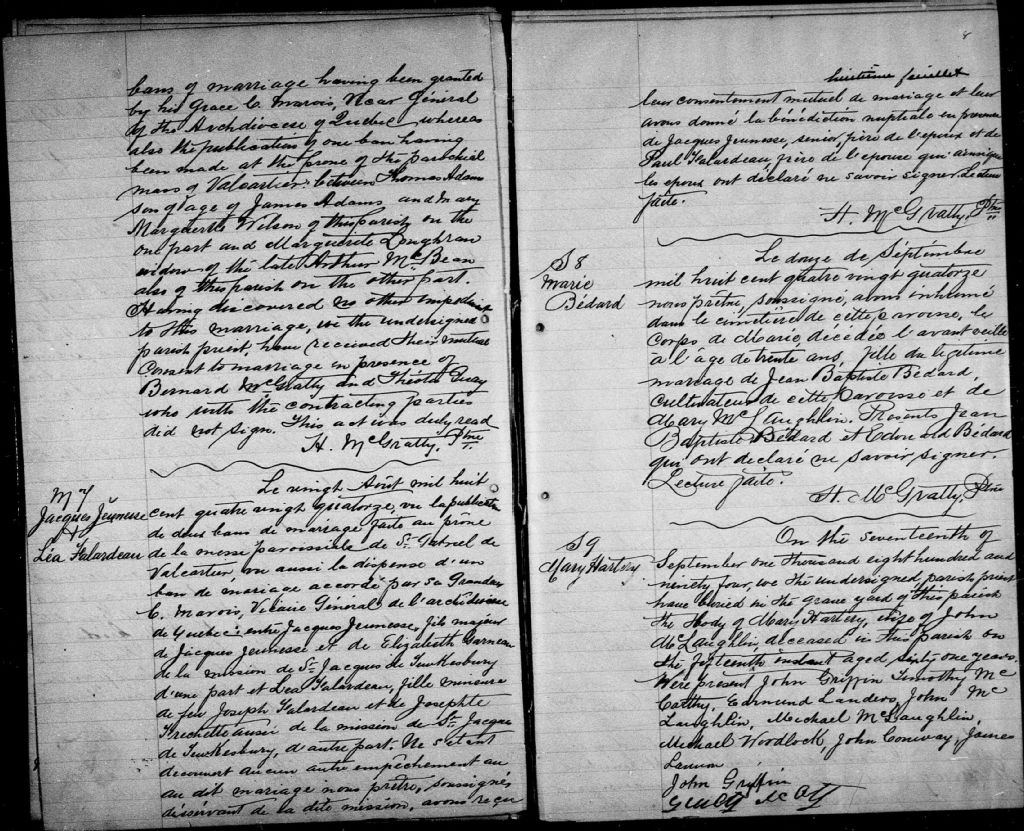 bans of marriage having been granted
by his Grace C. Marois, Vicar Général
of the Archdiocese of Quebec whereas
also the publication of one ban having
been made at the prone of the parochial
mass of Valcartier: between Thomas Adams
son of age of James Adams and Mary
Marguerite Wilson of this parish on the
one part and Marguerite Loughran
widow of the late Arthur McBean
also of this parish on the other part.
Having discovered no other impediment
to this marriage, we the undersigned
parish priest, have received their mutual
consent to marriage in presence of
Bernard McGratty and Guay
who with the contracting parties
did not sign. This act was duly read
H. McGratty, Ptre
M 7
Jacques Jeunesse
&
Léa Falardeau
Le vingt Août mil huit
cent quatre vingt quatorze, vu la publication
de deux bans de mariage faite au prône
de la messe paroissiale de St Gabriel de
Valcartier, vu aussi la dispense d'un
ban de mariage accordé par Sa Grandeur
C. Marois, Vicaire Général de l'archidiocèse
de Quebec: entre Jacques Jeunesse, fils majeur
de Jacques Jeunesse et de Elizabeth Garneau
de la mission de St Jacques de Tewkesbury
d'une part et Léa Falardeau, fille mineure
de feu Joseph Falardeau et de Josephte
Frechette aussi de la mission de St Jacques
de Tewkesbury, d'autre part. Ne s'étant
decouvert aucun autre empêchement au
au dit mariage nous prêtre, soussigné
désservant de la dite mission, avons reçu
8
huitième feuillet
leur consentement mutuel de mariage et leur
avons donné la bénédiction nuptiale en presence
de Jacques Jeunesse, senior, père de l'epoux et de
Paul Falardeau, frère de l'epouse qui ainsi que
les epoux ont déclaré ne savoir signer. Lecture
faite.
H. McGratty, Ptre
S8
Marie
Bédard
Le douze de Séptembre
mil huit cent quatre vingt quatorze
nous prêtre, soussigné, avons inhumé
dans le cimetière de cette paroisse, le
corps de Marie, décédée l'avant veille
à l'age de trente ans, fille du légitime
mariage de Jean Baptiste Bédard,
cultivateur de cette paroisse et de
Mary McLaughlin. Présents Jean
Baptiste Bédard et Edouard Bédard
qui ont declaré ne savoir signer.
Lecture faite.
H. McGratty, Ptre
S9
Mary Hartery
On the seventeenth of
September one thousand eight hundred and
ninety four, we the undersigned, parish priest
have buried in the grave yard of this parish
the body of Mary Hartery, wife of John
McLaughlin deceased in this parish on
the fifteenth instant aged sixty one years.
Were present John Griffin Timothy Mc
Carthy, Edmund Landers, John Mc
Laughlin, Michael McLaughlin,
Michael Woodlock, John Conway, James
Lannon
John Griffin